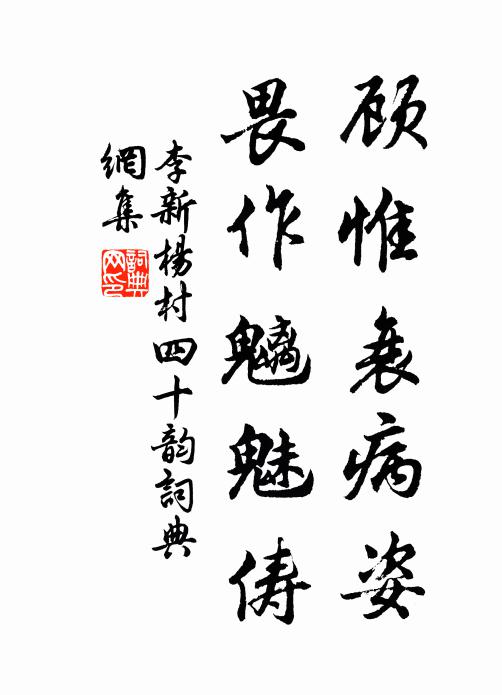 顾惟衰病姿
畏作魑魅俦
李新楊村四十韵詞典
網集
詞典网印